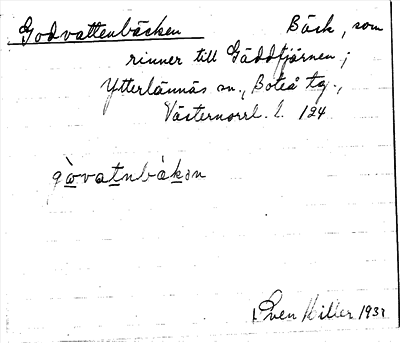 Godvattenbäcken Bäck, som
rinner till Gäddtjärnen;
Ytterlännäs sn., Boteå tg.,
Västernorrl. l. 124
gòvatnbàkǝn
Sven Hiller 1931